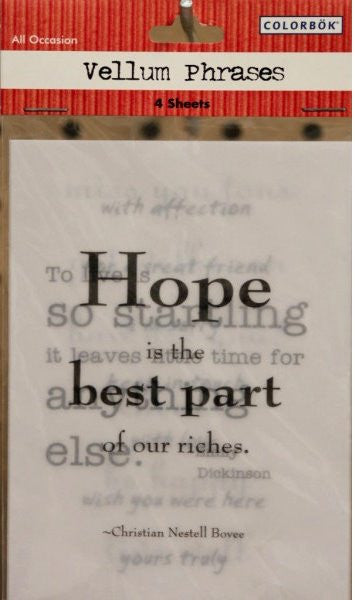 COLORBÖK™
All Occasion
Vellum Phrases
4 Sheets
with affection
great friend
To live is
Hope
so startling
is the
it leaves little time for
best part
anything
of our riches.
else.
Emily
Dickinson
wish you were here
~Christian Nestell Bovee
yours truly